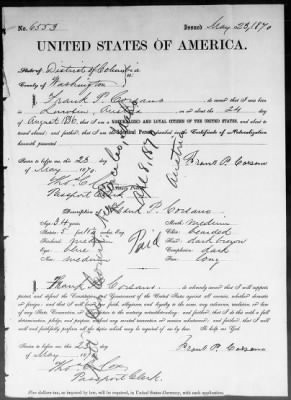 No. 6553 Issued May 23, 1870
UNITED STATES OF AMERICA.
State of District of Columbia
County of Washington
I, Frank P. Corsano, do swear that I was born in
Austria, on or about the 24 day
of August 1836, that I am a NATURALIZED AND LOYAL CITIZEN OF THE UNITED STATES, and about to
travel abroad; and further, that I am the identical Person described in the Certificate of Naturalization
herewith presented.
Sworn to before me, this 23 day
of May 1870.
Frank P. Corsano
Tho. C. Cox
Passport Clerk
Description of Frank P. Corsano
Age: 34 years Mouth: medium
Stature: 5 feet inches, Eng. Chin: bearded
Forehead: Hair: dark brown
Eyes: blue Complexion: dark
Nose: medium Face: long
Apl 8, 1870
Austria
Paid
I, Frank P. Corsano, do solemnly swear that I will support,
protect and defend the Constitution and Government of the United States against all enemies, whether domestic
or foreign; and that I will bear true faith, allegiance and loyalty to the same, any ordinance, resolution or law
of any State Convention or Legislature to the contrary notwithstanding; and further, that I do this with a full
determination, pledge and purpose, without any mental reservation or evasion whatsoever; and further, that I will
well and faithfully perform all the duties which may be required of me by law. So help me God.
Sworn to before me, this 23 day
of May 1870
Frank P. Corsano
Tho. C. Cox
Passport Clerk.